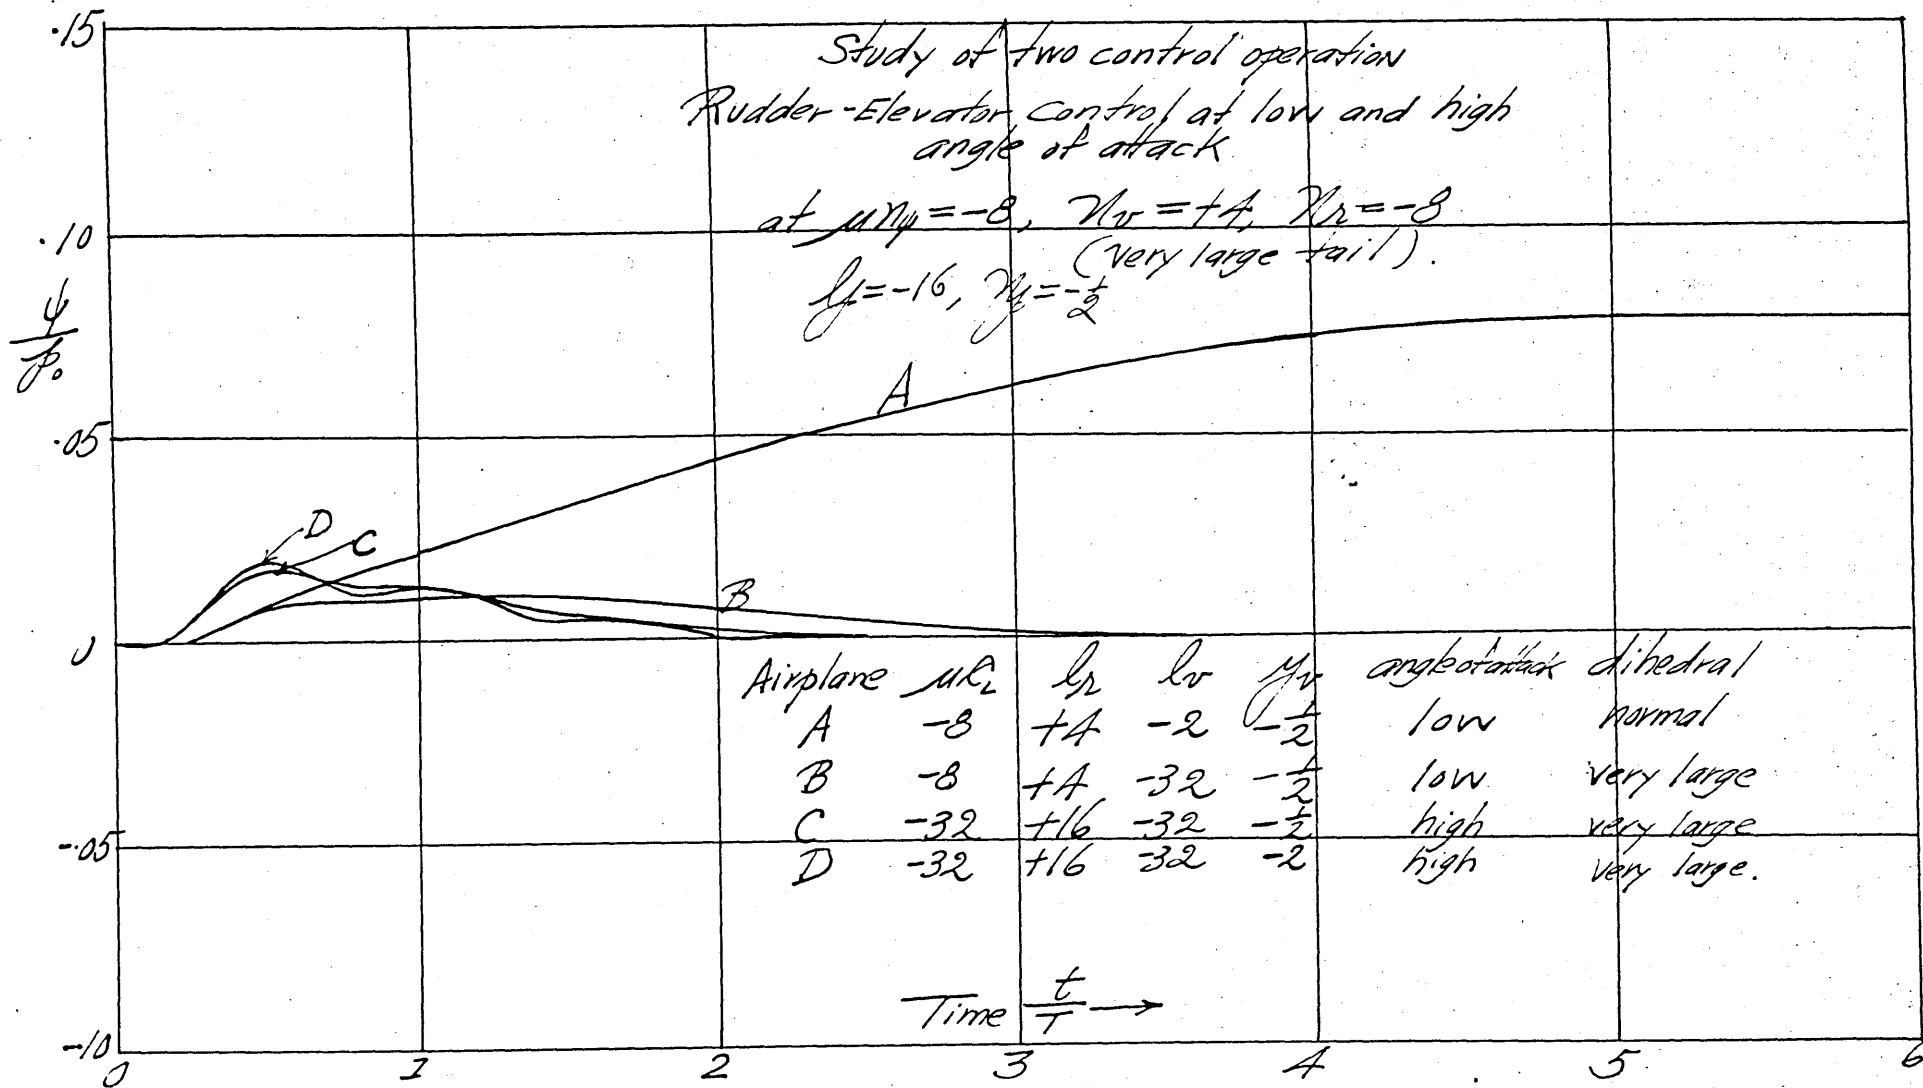 Study of two control operation
Rudder-Elevator Control at low and high
angle of attack
at μnψ = -8, nv = +4, nr = -8
(very large tail).
lp = -16, yψ = -½
.15
.10
ψ/p₀
.05
0
-.05
-.10
A
D
C
B
Airplane lr lv yv angle of attack dihedral
A -8 +4 -2 -½ low normal
B -8 +4 -32 -½ low very large
C -32 +16 -32 -½ high very large
D -32 +16 -32 -2 high very large.
Time t/T →
0 1 2 3 4 5 6